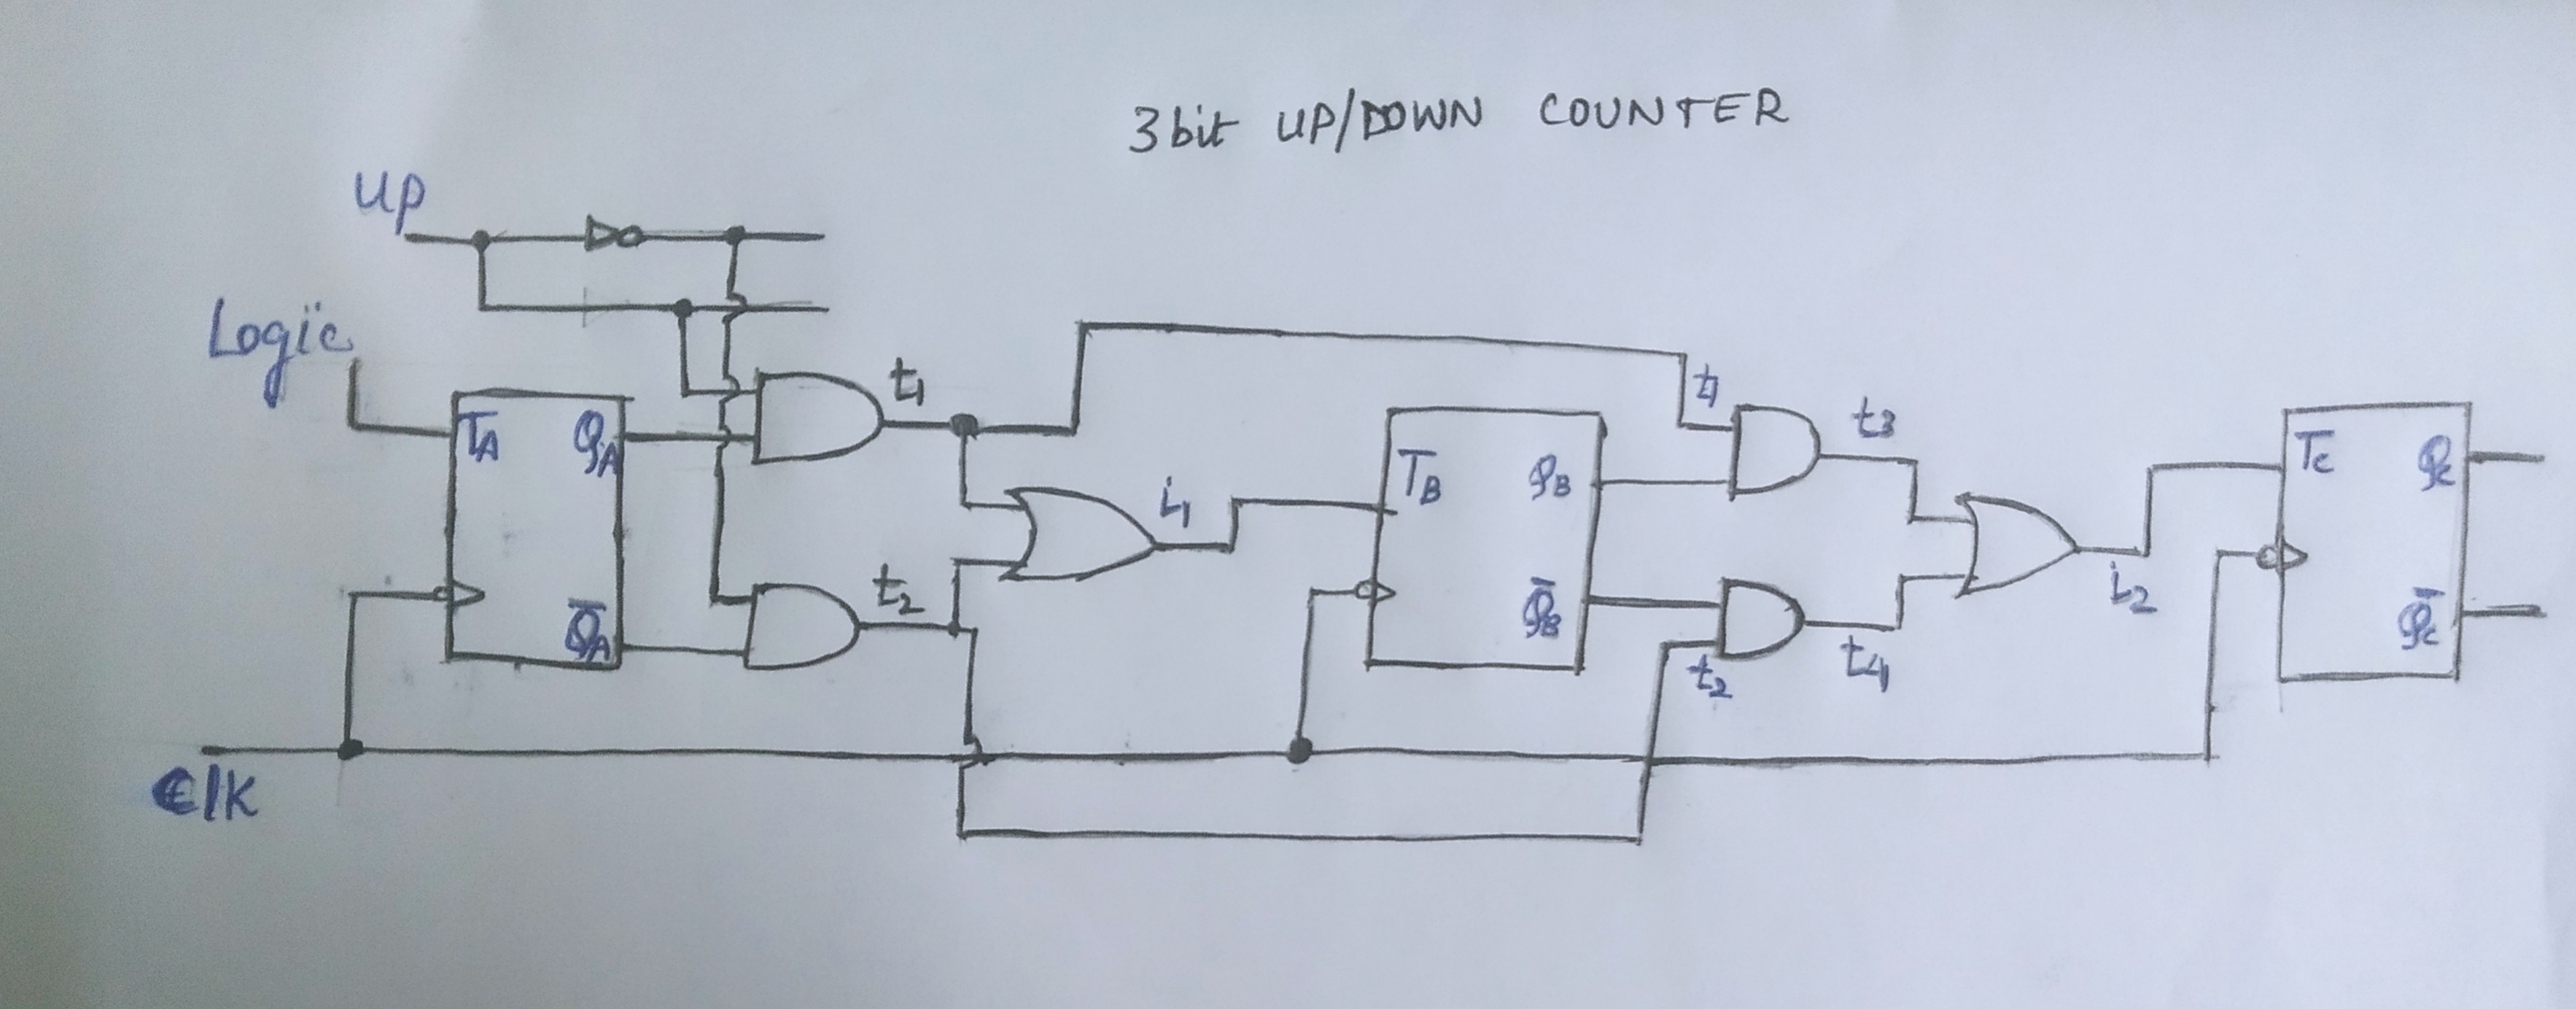 3bit UP/DOWN COUNTER
up
Logic
TA QA
Q̅A
Clk
t1
t2
i1
TB QB
Q̅B
t1
t2
t3
t4
i2
TC QC
Q̅C